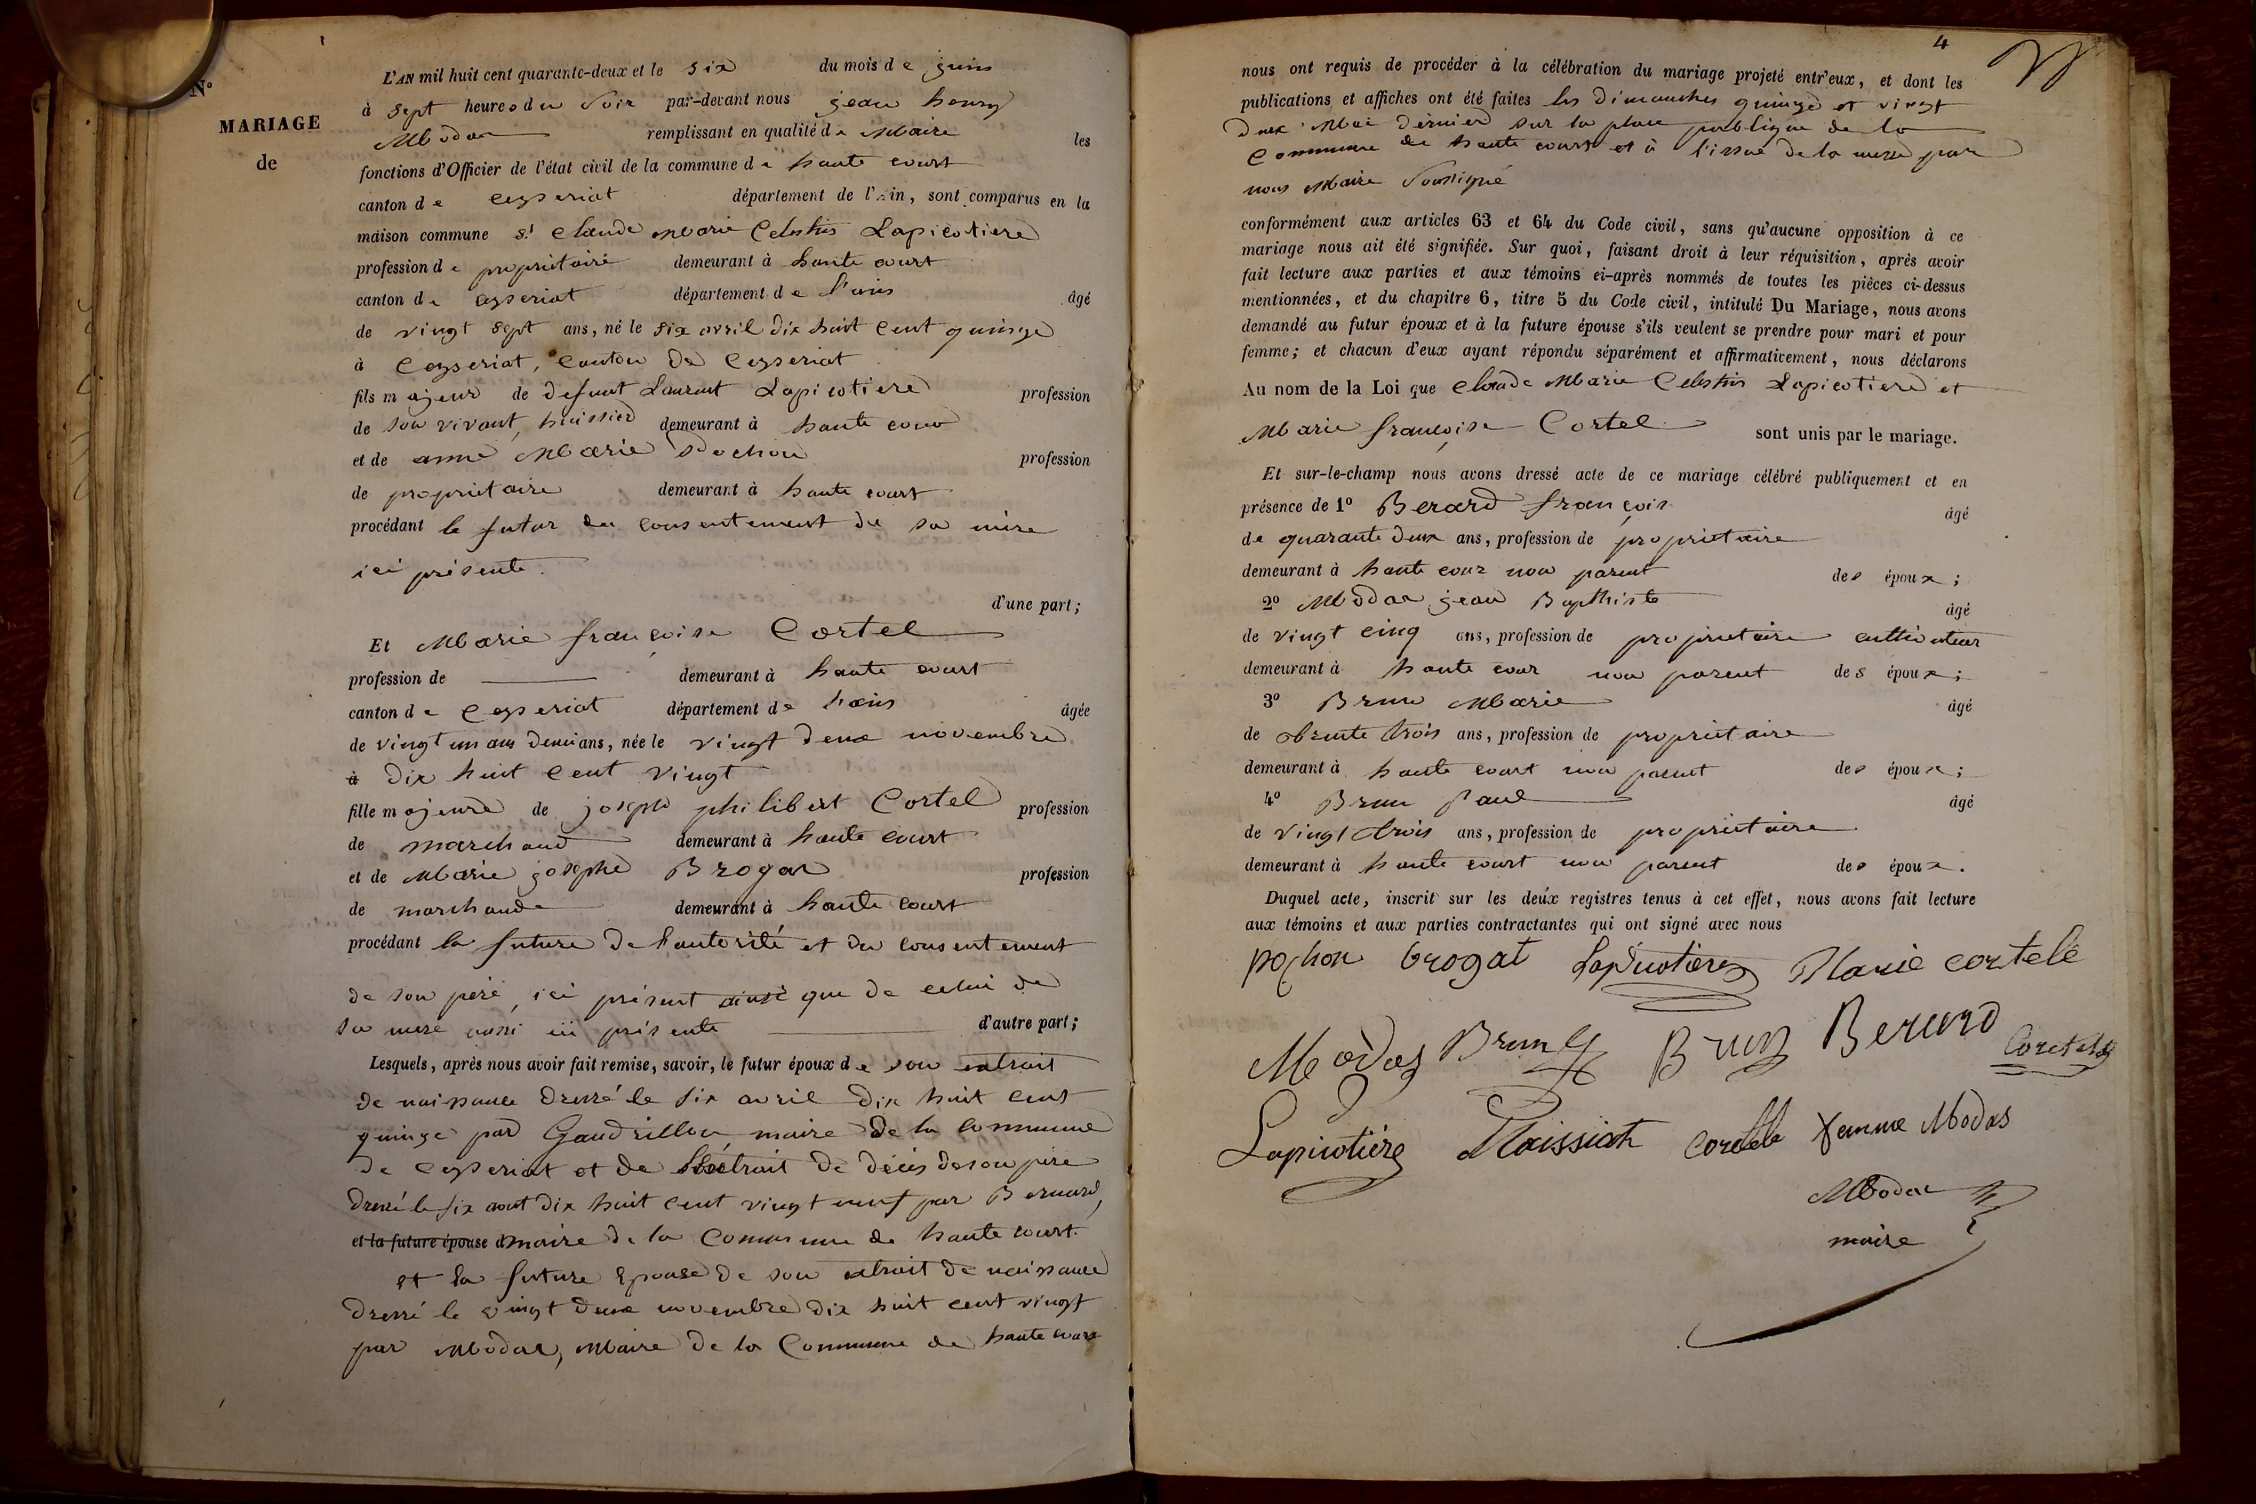 N°
MARIAGE
de
L'AN mil huit cent quarante-deux et le six du mois de juin
à sept heures du soir par-devant nous jean henry
Modas remplissant en qualité de Maire les
fonctions d'Officier de l'état civil de la commune de haute court
canton de ceyseriat département de l'Ain, sont comparus en la
maison commune sr claude Marie Celestin Lapicotiere
profession de proprietaire demeurant à haute court
canton de ceyseriat département de l'ain âgé
de vingt sept ans, né le six avril dix huit cent quinze
à Ceyseriat, canton de Ceyseriat
fils majeur de defunt Laurent Lapicotiere profession
de son vivant, huissier demeurant à haute cour
et de anne Marie pochon profession
de proprietaire demeurant à haute court
procédant le futur du consentement de sa mère
ici présente.
d'une part;
Et Marie françoise Cortel
profession de demeurant à haute court
canton de Ceyseriat département de l'ain âgée
de vingt un ans demi ans, née le vingt deux novembre
à dix huit cent vingt
fille majeure de joseph philibert Cortel profession
de marchand demeurant à haute court
et de Marie josephe Brogat profession
de marchande demeurant à haute court
procédant la future de l'autorité et du consentement
de son père, ici présent ainsi que de celui de
sa mere aussi ici présente d'autre part;
Lesquels, après nous avoir fait remise, savoir, le futur époux de son extrait
de naissance dressé le six avril dix huit cent
quinze par Gaudrillon maire de la Commune
de Ceyseriat et de l'extrait de décès de son père
dressé le six aout dix huit cent vingt neuf par Bernard,
et la future épouse d maire de la Commune de haute court.
et la future Epouse de son extrait de naissance
dressé le vingt deux novembre dix huit cent vingt
par Modas, Maire de la Commune de haute court
4
nous ont requis de procéder à la célébration du mariage projeté entr'eux, et dont les
publications et affiches ont été faites les dimanches quinze et vingt
deux Mai dernier sur la place publique de la
Commune de haute court et à l'issue de la messe par
nous Maire soussigné
conformément aux articles 63 et 64 du Code civil, sans qu'aucune opposition à ce
mariage nous ait été signifiée. Sur quoi, faisant droit à leur réquisition, après avoir
fait lecture aux parties et aux témoins ci-après nommés de toutes les pièces ci-dessus
mentionnées, et du chapitre 6, titre 5 du Code civil, intitulé Du Mariage, nous avons
demandé au futur époux et à la future épouse s'ils veulent se prendre pour mari et pour
femme; et chacun d'eux ayant répondu séparément et affirmativement, nous déclarons
Au nom de la Loi que claude Marie Celestin Lapicotiere et
Marie françoise Cortel sont unis par le mariage.
Et sur-le-champ nous avons dressé acte de ce mariage célébré publiquement et en
présence de 1° Berard françois âgé
de quarante deux ans, profession de proprietaire
demeurant à haute cour non parent des époux;
2° Modas jean Bapthiste âgé
de vingt cinq ans, profession de proprietaire cultivateur
demeurant à haute cour non parent des époux;
3° Brun Marie âgé
de trente trois ans, profession de proprietaire
demeurant à haute court non parent des époux;
4° Brun Paul âgé
de vingt trois ans, profession de proprietaire
demeurant à haute court non parent des époux.
Duquel acte, inscrit sur les deux registres tenus à cet effet, nous avons fait lecture
aux témoins et aux parties contractantes qui ont signé avec nous
pochon brogat Lapicotière Marie cortele
Modas Brun Brun Berard Cortel
Lapicotiére Maissiat cortele femme Modas
Modas
maire